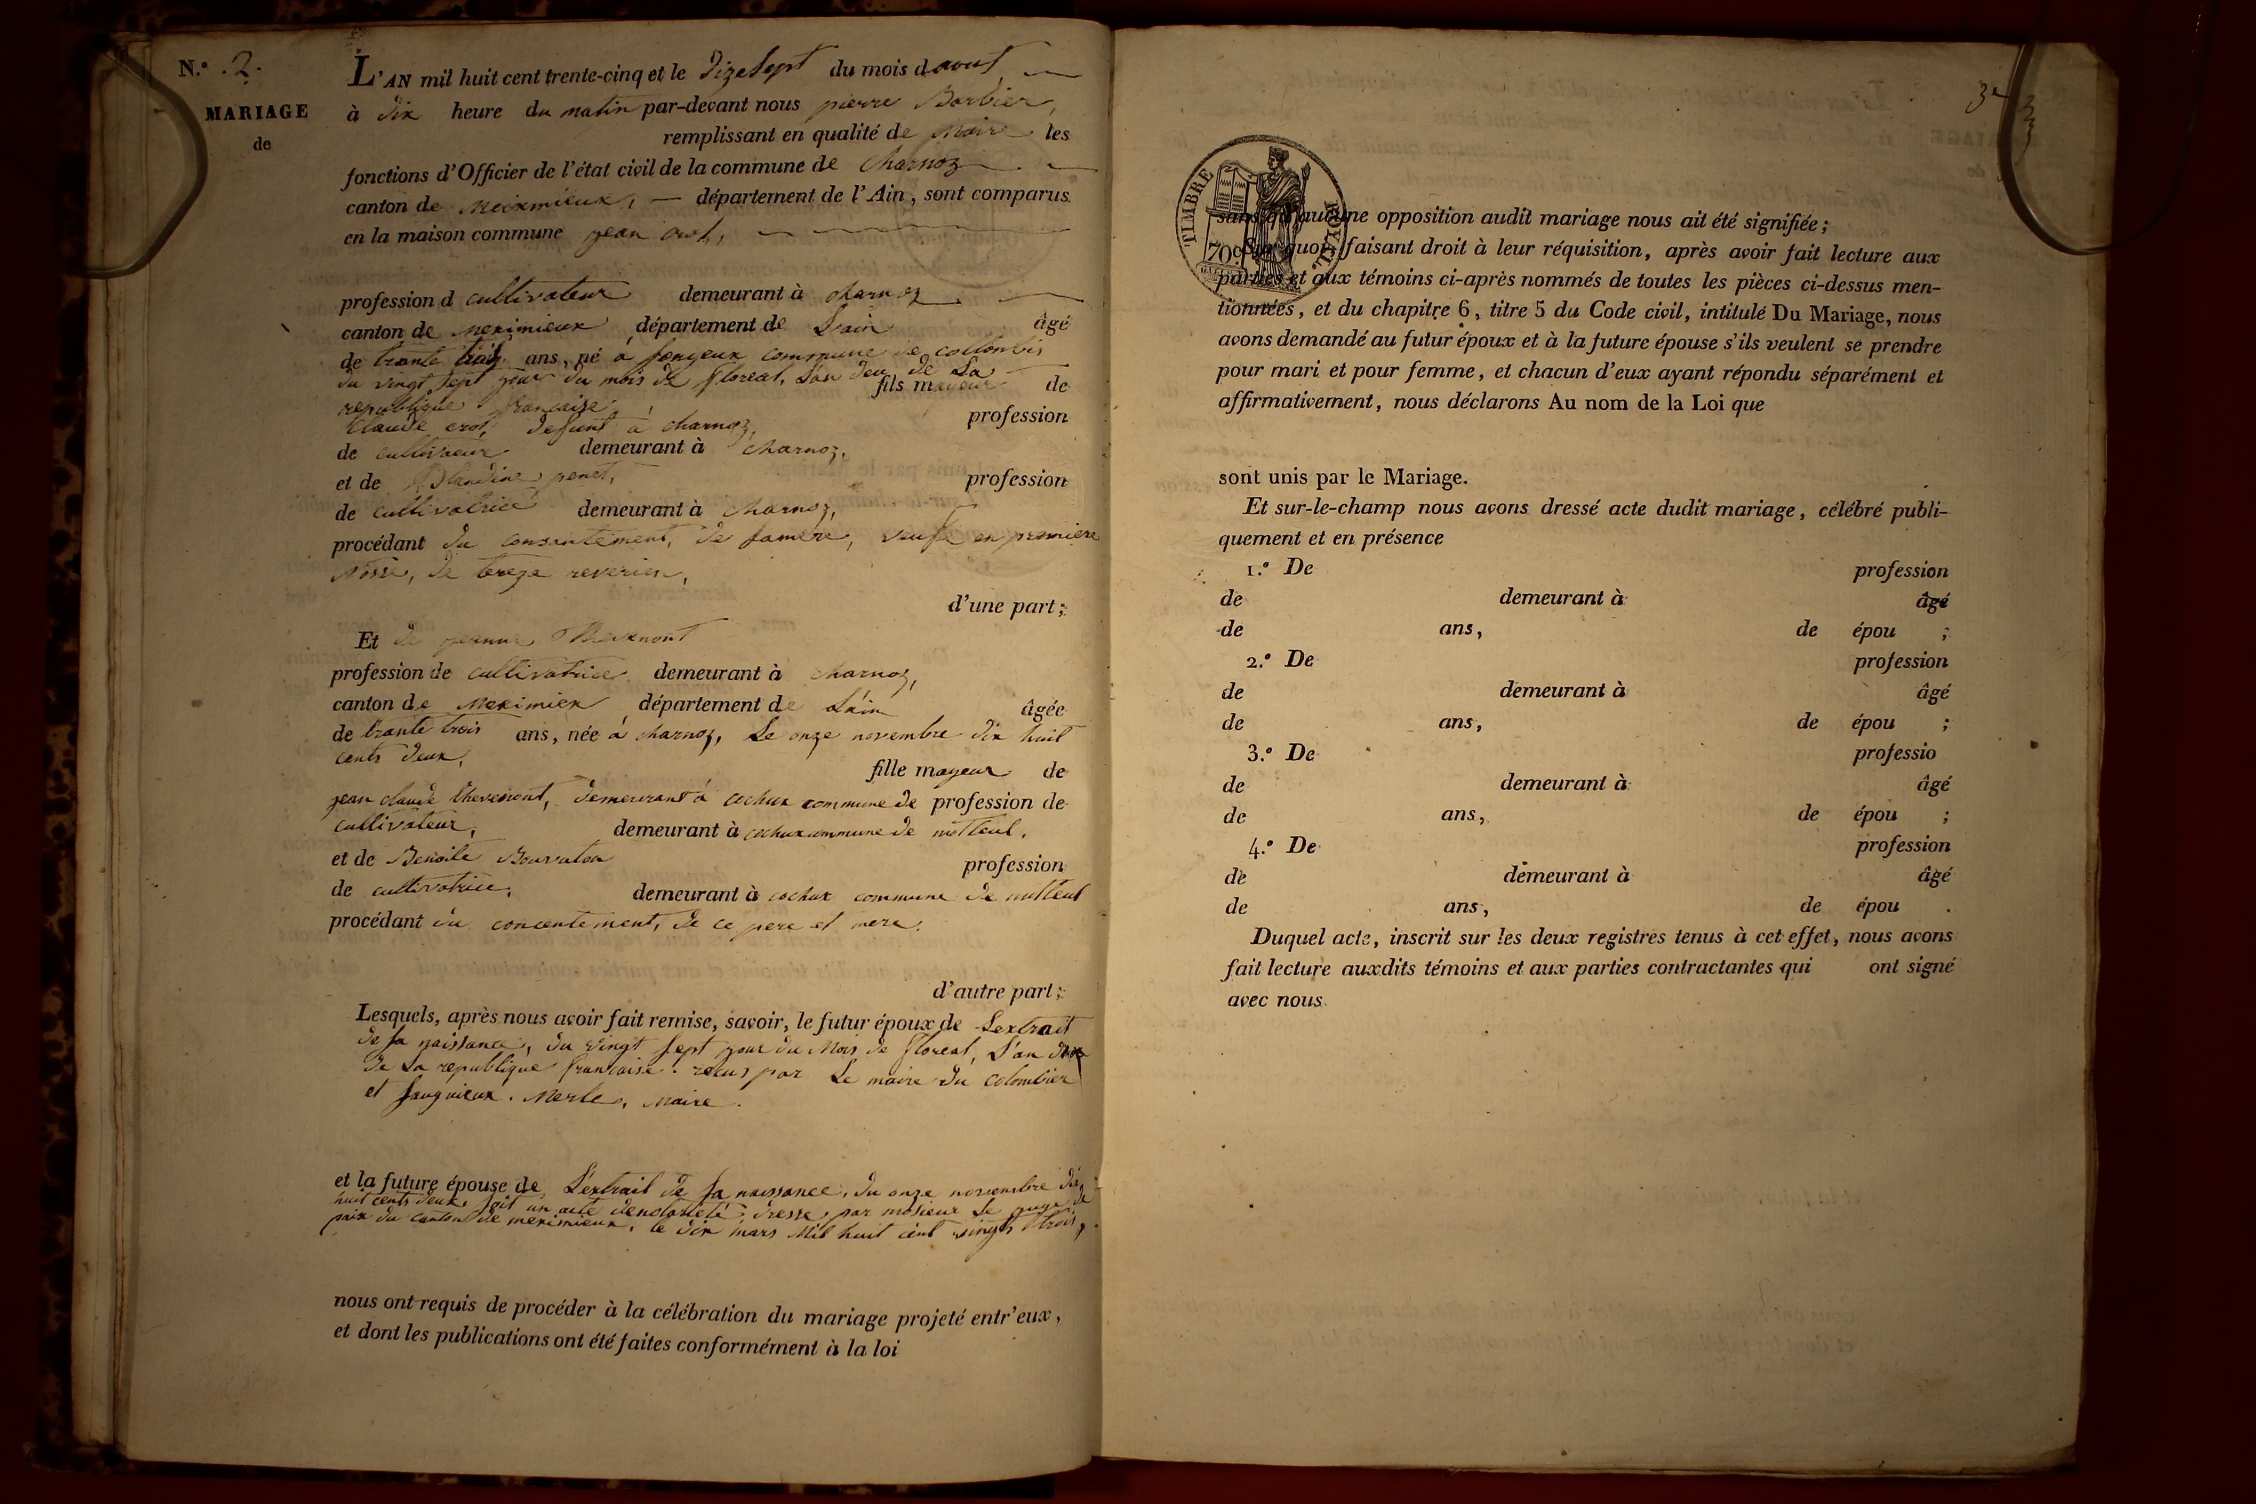 N.º 2.
MARIAGE
de
L'AN mil huit cent trente-cinq et le dizesept du mois d aout
à dix heure du matin par-devant nous pierre Barbier,
remplissant en qualité de Maire les
fonctions d'Officier de l'état civil de la commune de Charnoz
canton de Meixmieux, département de l'Ain, sont comparus
en la maison commune jean
profession d cultivateur demeurant à charnoz
canton de Meximieux département de Lain âgé
de trante trois ans, né à commune de
du vingt sept jour du mois de floreal, L'an deu de La
republique francaise fils mayeur de
Claude defunt à charnoz, profession
de cultivateur demeurant à charnoz,
et de Blandine penet, profession
de cultivatrice demeurant à charnoz,
procédant du consentement, de samere, veufe en premiere
de
d'une part;
Et de jeanne
profession de cultivatrice demeurant à charnoz,
canton de Meximiex département de Lain âgée
de trante trois ans, née à charnoz, Le onze novembre dix huit
cents deux, fille mayeur de
jean claude thevenont, demeurant à cochux commune de profession de
cultivateur, demeurant à cochux commune de
et de Benoite profession
de cultivatrice, demeurant à cochux commune de
procédant du concentement, de ce pere et mere.
d'autre part;
Lesquels, après nous avoir fait remise, savoir, le futur époux de Lextrait
de sa naissance, du vingt sept jour du Mois de floreal, L'an deux
de La republique francaise. par Le maire du Colombier
et saugnieux. Merle, Maire.
et la future épouse de L'extrait de sa naissance, du onze novembre dix
huit cents deux, soit un acte denotorieté, dresse, par mosieur Le juge de
paix du canton de meximieux, le dix mars Mil huit cent vingts trois,
nous ont requis de procéder à la célébration du mariage projeté entr'eux,
et dont les publications ont été faites conformément à la loi
TIMBRE ROYAL
70 c
sans qu'aucune opposition audit mariage nous ait été signifiée;
Sur quoi, faisant droit à leur réquisition, après avoir fait lecture aux
parties et aux témoins ci-après nommés de toutes les pièces ci-dessus men-
tionnées, et du chapitre 6, titre 5 du Code civil, intitulé Du Mariage, nous
avons demandé au futur époux et à la future épouse s'ils veulent se prendre
pour mari et pour femme, et chacun d'eux ayant répondu séparément et
affirmativement, nous déclarons Au nom de la Loi que
sont unis par le Mariage.
Et sur-le-champ nous avons dressé acte dudit mariage, célébré publi-
quement et en présence
1.º De profession
de demeurant à âgé
de ans, de épou ;
2.º De profession
de demeurant à âgé
de ans, de épou ;
3.º De professio
de demeurant à âgé
de ans, de épou ;
4.º De profession
de demeurant à âgé
de ans, de épou .
Duquel acte, inscrit sur les deux registres tenus à cet effet, nous avons
fait lecture auxdits témoins et aux parties contractantes qui ont signé
avec nous.